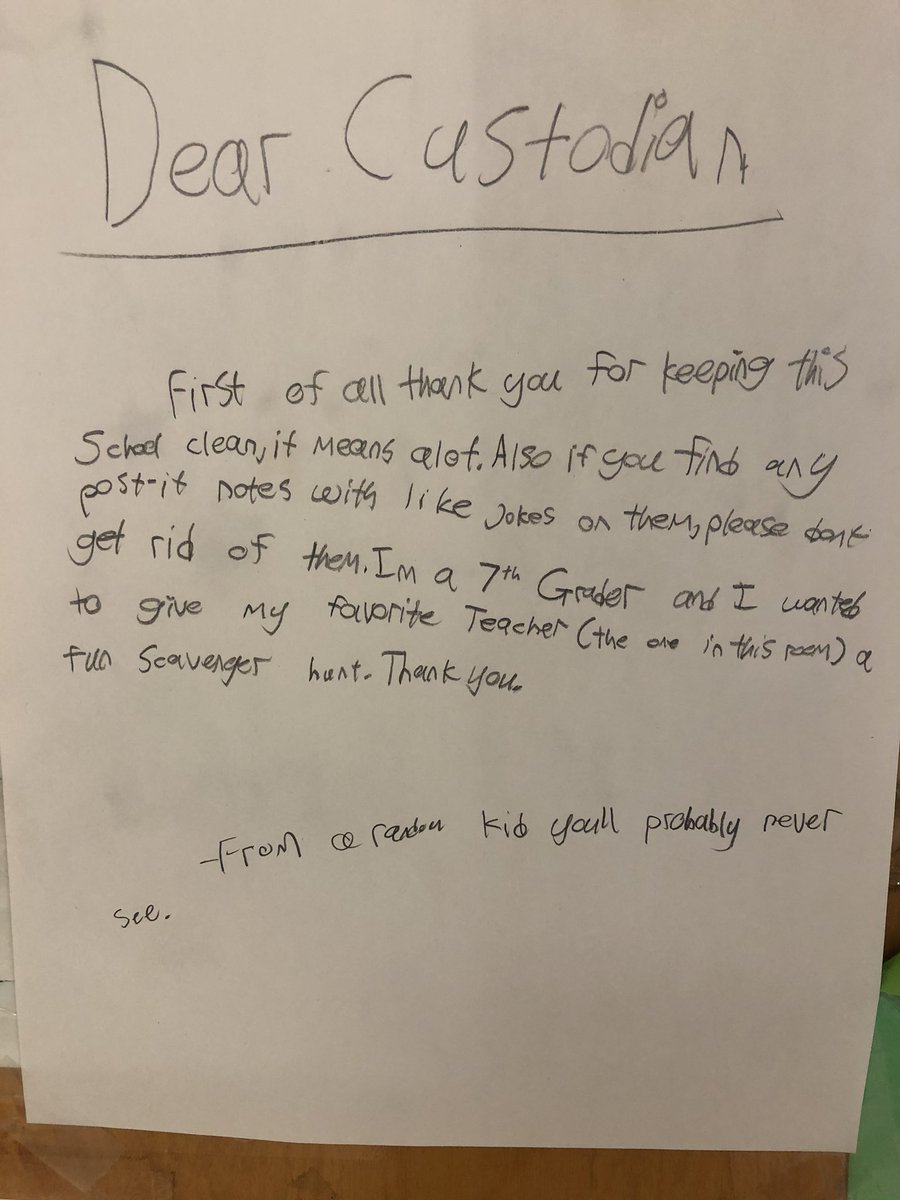 Dear Custodian
First of all thank you for keeping this
School clean, it means alot. Also if you find any
post-it notes with like jokes on them, please dont
get rid of them. Im a 7th Grader and I wanted
to give my favorite Teacher (the one in this room) a
fun Scavenger hunt. Thank you.
-From a random kid youll probably never
see.